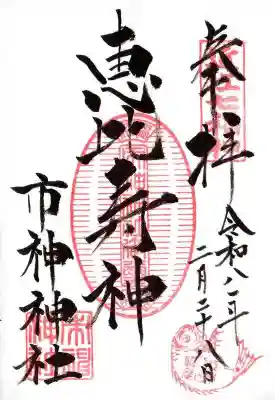 奉拝
令和八年
二月二十八日
恵比寿神
市神神社